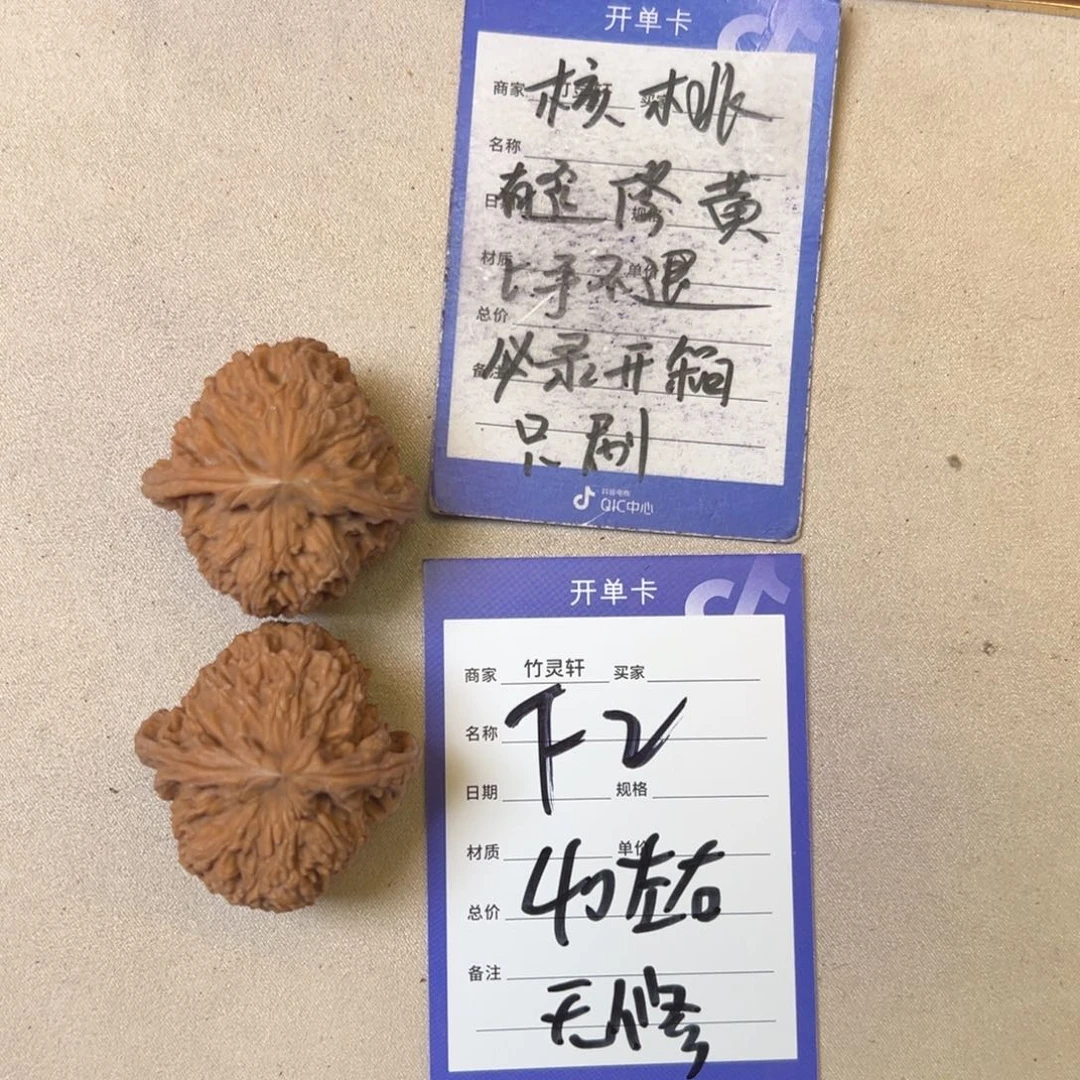 开单卡
商家 竹灵轩 买家
核桃
名称
日期 规格
有歪修黄
材质 单价
上手不退
总价
备注
必录开箱
只刷
抖音电商
QIC中心
开单卡
商家 竹灵轩 买家
名称
下2
日期 规格
材质 单价
40左右
总价
备注
无修